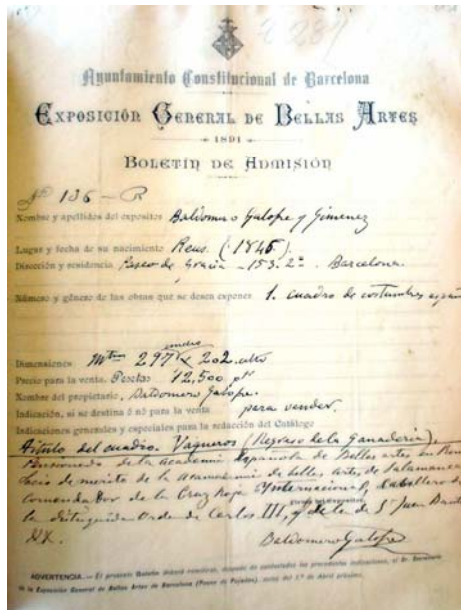 2237
Ayuntamiento Constitucional de Barcelona
EXPOSICIÓN GENERAL DE BELLAS ARTES
1891
BOLETÍN DE ADMISIÓN
Nº 136 - R
Nombre y apellidos del expositor Baldomero Galofre y Gimenez
Lugar y fecha de su nacimiento Reus. (1845).
Dirección y residencia Paseo de Gracia - 153. 2º. Barcelona.
Número y género de las obras que se desea exponer 1. cuadro de costumbres
Dimensiones Mtrs 297 x 202 alto
Precio para la venta. Pesetas 12,500
Nombre del propietario. Baldomero Galofre.
Indicación, si se destina ó nó para la venta para vender.
Indicaciones generales y especiales para la redacción del Catálogo
Titulo del cuadro. Vaqueros (Regreso de la Ganaderia).
Pensionado de la Academia Española de Bellas artes en
Socio de merito de la Academia de bellas artes de Salamanca
Comendador de la Cruz Roja Internacional, Caballero de
la distinguida Orde de Carlos III, y de la de Sn Juan
Baldomero Galofre
ADVERTENCIA. — El presente Boletín deberá remitirse, después de contestadas las precedentes indicaciones, al Sr. Secretario
de la Exposición General de Bellas Artes de Barcelona (Paseo de Pujadas), antes del 1.º de Abril próximo.